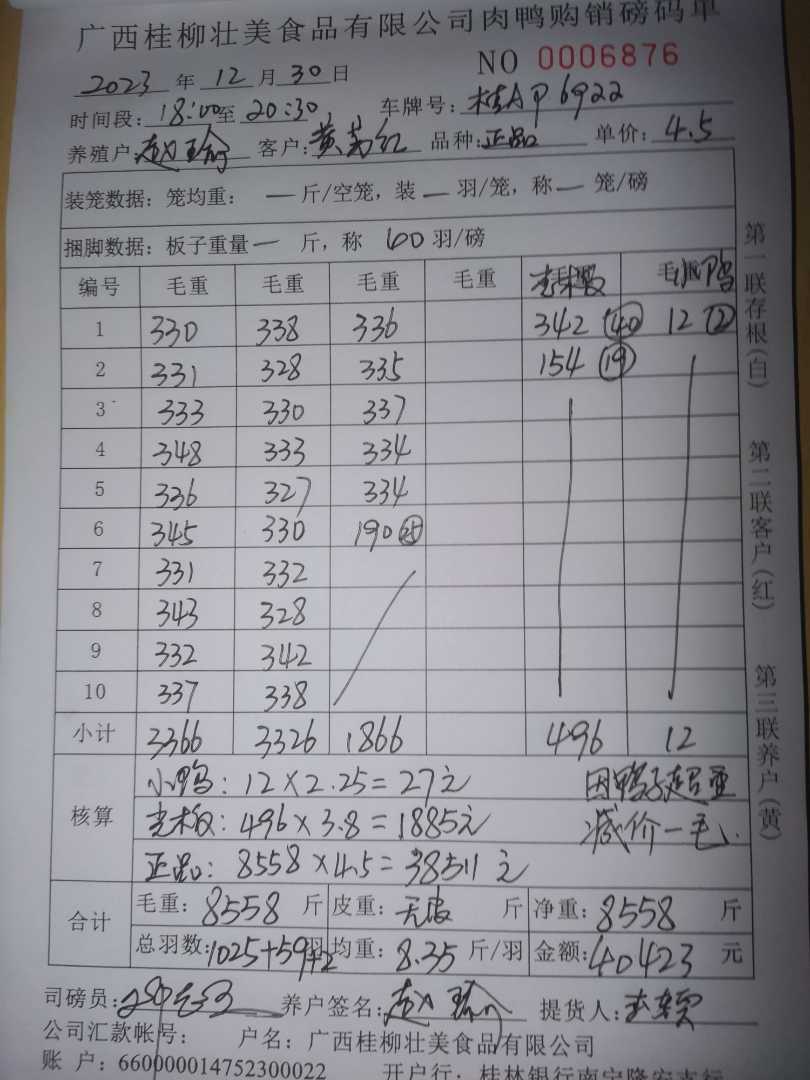 广西桂柳壮美食品有限公司肉鸭购销磅码单
NO 0006876
2023 年 12 月 30 日
时间段: 18:00 至 20:30 车牌号: 桂AP6922
养殖户: 赵瑜 客户: 黄 红 品种: 正品 单价: 4.5
装笼数据: 笼均重: — 斤/空笼, 装 — 羽/笼, 称 — 笼/磅
捆脚数据: 板子重量 — 斤, 称 60 羽/磅
编号 毛重 毛重 毛重 毛重 毛 小鸭
1 330 338 336 342 (40) 12 (2)
2 331 328 335 154 (19)
3 333 330 337
4 348 333 334
5 336 327 334
6 345 330 190 (25)
7 331 332
8 343 328
9 332 342
10 337 338
小计 3366 3326 1866 496 12
核算 小鸭: 12×2.25=27元 因鸭子超重
496×3.8=1885元 减价一毛.
正品: 8558×4.5=38511元
合计 毛重: 8558 斤 皮重: 无皮 斤 净重: 8558 斤
总羽数: 1025+59+2 羽 均重: 8.35 斤/羽 金额: 40423 元
司磅员: 养户签名: 赵瑜 提货人:
公司汇款帐号: 户名: 广西桂柳壮美食品有限公司
账 户: 660000014752300022 开户行: 桂林银行南宁隆安支行
第一联存根(白) 第二联客户(红) 第三联养户(黄)